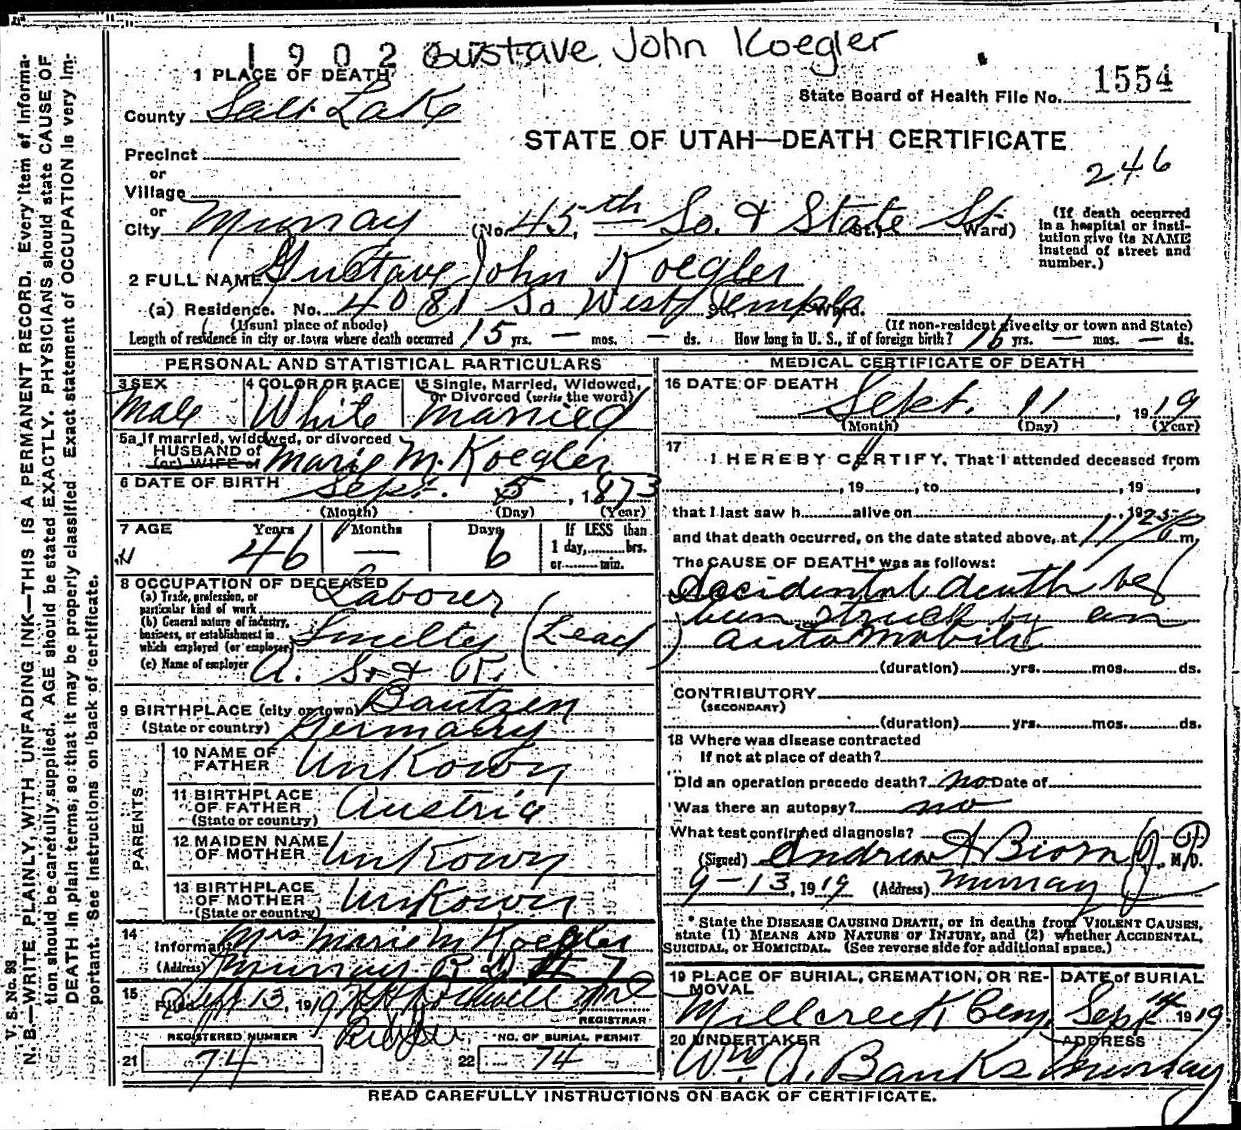 1902 Gustave John Koegler
1 PLACE OF DEATH
State Board of Health File No. 1554
County Salt Lake
STATE OF UTAH—DEATH CERTIFICATE
Precinct
246
or
Village
or
City Murray (No. 45th So. & State St. St., Ward)
(If death occurred in a hospital or institution give its NAME instead of street and number.)
2 FULL NAME Gustave John Koegler
(a) Residence. No. 4081 So West Temple St., Ward.
(Usual place of abode) (If non-resident give city or town and State)
Length of residence in city or town where death occurred 15 yrs. — mos. — ds. How long in U. S., if of foreign birth? 16 yrs. — mos. — ds.
PERSONAL AND STATISTICAL PARTICULARS
3 SEX 4 COLOR OR RACE 5 Single, Married, Widowed, or Divorced (write the word)
Male White Married
5a If married, widowed, or divorced
HUSBAND of
(or) WIFE of Marie M. Koegler
6 DATE OF BIRTH Sept. 5, 1873
(Month) (Day) (Year)
7 AGE Years Months Days If LESS than 1 day, hrs. or min.
46 — 6
8 OCCUPATION OF DECEASED
(a) Trade, profession, or particular kind of work Laborer
(b) General nature of industry, business, or establishment in which employed (or employer) Smelter (Lead)
(c) Name of employer A. S. & R.
9 BIRTHPLACE (city or town) Bautzen
(State or country) Germany
PARENTS
10 NAME OF FATHER Unkown
11 BIRTHPLACE OF FATHER (State or country) Austria
12 MAIDEN NAME OF MOTHER Unkown
13 BIRTHPLACE OF MOTHER (State or country) Unkown
14
Informant Mrs Marie M Koegler
(Address) Murray R D # 7
15
Filed Sept 13, 1919
REGISTRAR
REGISTERED NUMBER NO. OF BURIAL PERMIT
21 74 22 74
MEDICAL CERTIFICATE OF DEATH
16 DATE OF DEATH
Sept. 11, 1919
(Month) (Day) (Year)
17
I HEREBY CERTIFY, That I attended deceased from
, 19 , to , 19 ,
that I last saw h alive on , 19
and that death occurred, on the date stated above, at m.
The CAUSE OF DEATH* was as follows:
Accidental death by
struck by an
automobile
(duration) yrs. mos. ds.
CONTRIBUTORY
(SECONDARY)
(duration) yrs. mos. ds.
18 Where was disease contracted
If not at place of death?
Did an operation precede death? no Date of
Was there an autopsy? no
What test confirmed diagnosis?
(Signed) Andrew Biorn J. P. M. D.
9-13, 1919 (Address) Murray
* State the DISEASE CAUSING DEATH, or in deaths from VIOLENT CAUSES,
state (1) MEANS AND NATURE OF INJURY, and (2) whether ACCIDENTAL,
SUICIDAL, or HOMICIDAL. (See reverse side for additional space.)
19 PLACE OF BURIAL, CREMATION, OR REMOVAL DATE of BURIAL
Millcreek Cem. Sept 14 1919
20 UNDERTAKER ADDRESS
Wm. A. Banks Murray
READ CAREFULLY INSTRUCTIONS ON BACK OF CERTIFICATE.
V. S. No. 93
N. B.—WRITE PLAINLY, WITH UNFADING INK—THIS IS A PERMANENT RECORD. Every item of informa-
tion should be carefully supplied. AGE should be stated EXACTLY. PHYSICIANS should state CAUSE OF
DEATH in plain terms, so that it may be properly classified. Exact statement of OCCUPATION is very im-
portant. See instructions on back of certificate.